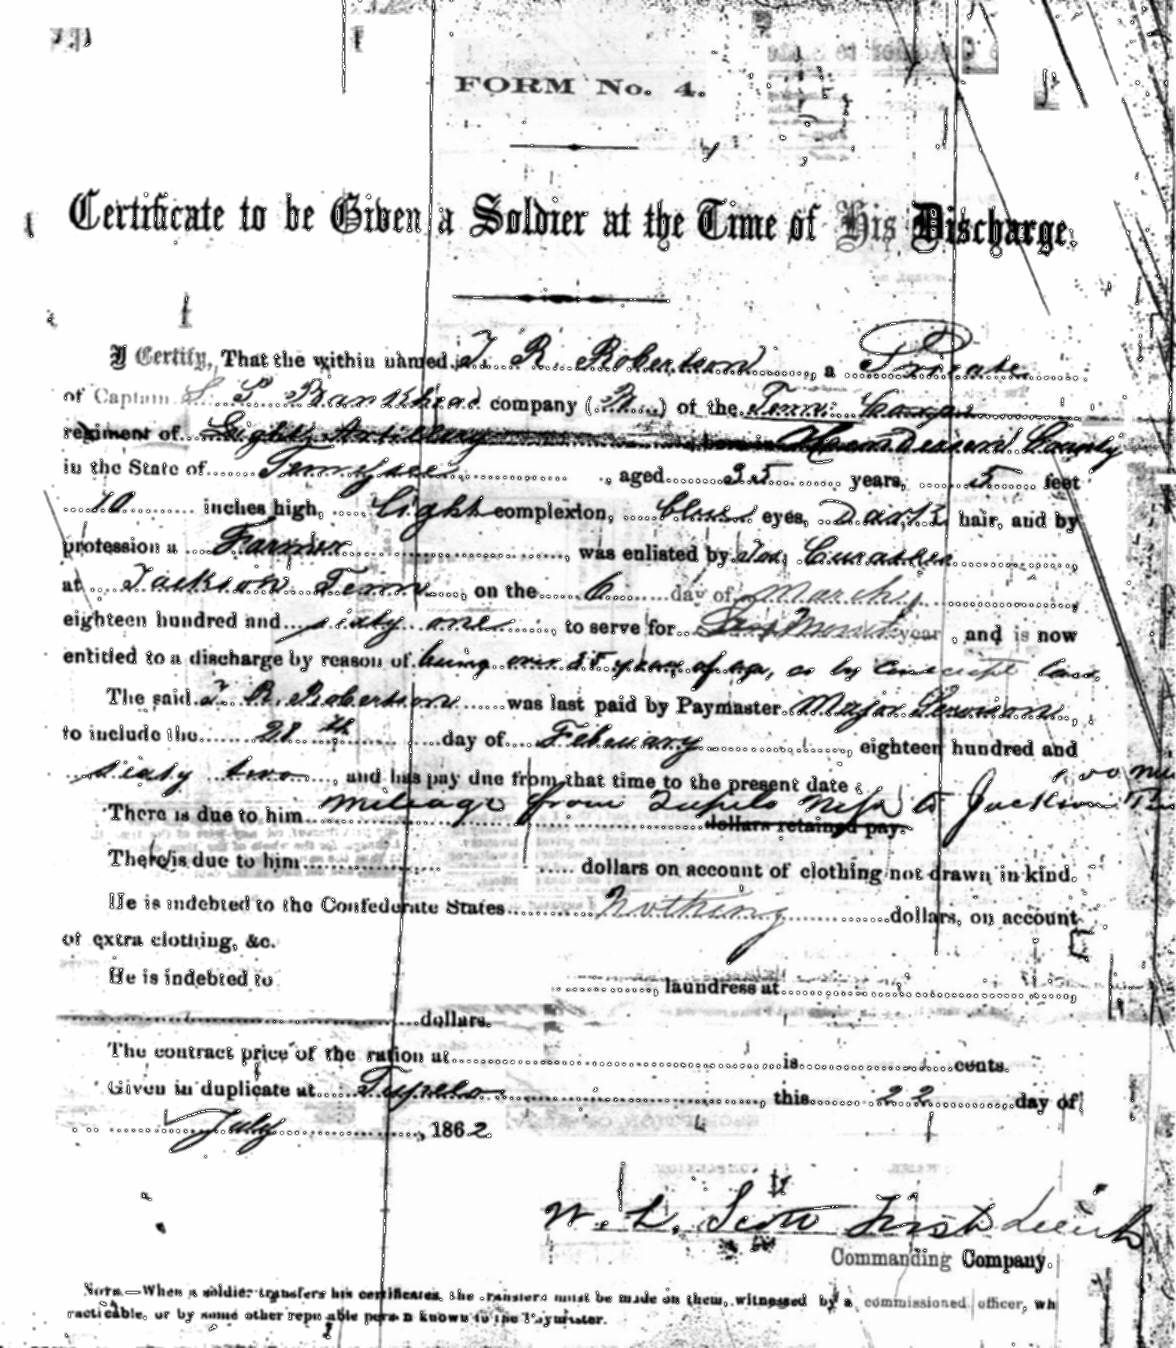 FORM No. 4.
Certificate to be Given a Soldier at the Time of His Discharge.
I Certify, That the within named J. R. Robertson, a Private
of Captain S. P. Bankhead company (B) of the Tenn.
regiment of Light Artillery born Henderson County
in the State of Tennessee, aged 35 years, 5 feet
10 inches high, light complexion, blue eyes, Dark hair, and by
profession a Farmer, was enlisted by
at Jackson Tenn, on the 6 day of March,
eighteen hundred and sixty one, to serve for year, and is now
entitled to a discharge by reason of being over 35 years of age, as by conscript law.
The said J. R. Robertson was last paid by Paymaster Major
to include the 28th day of Febuary, eighteen hundred and
sixty two, and has pay due from that time to the present date
There is due to him mileage from Tupelo Miss to Jackson
dollars retained pay.
There is due to him dollars on account of clothing not drawn in kind.
He is indebted to the Confederate States Nothing dollars, on account
of extra clothing, &c.
He is indebted to , laundress at ,
dollars.
The contract price of the ration at is cents.
Given in duplicate at Tupelo, this 22 day of
July, 1862
W. L. Scott First Lieut
Commanding Company.
Note.—When a soldier transfers his certificates, the transfers must be made on them, witnessed by a commissioned officer, wh
racticable, or by some other reputable person known to the Paymaster.